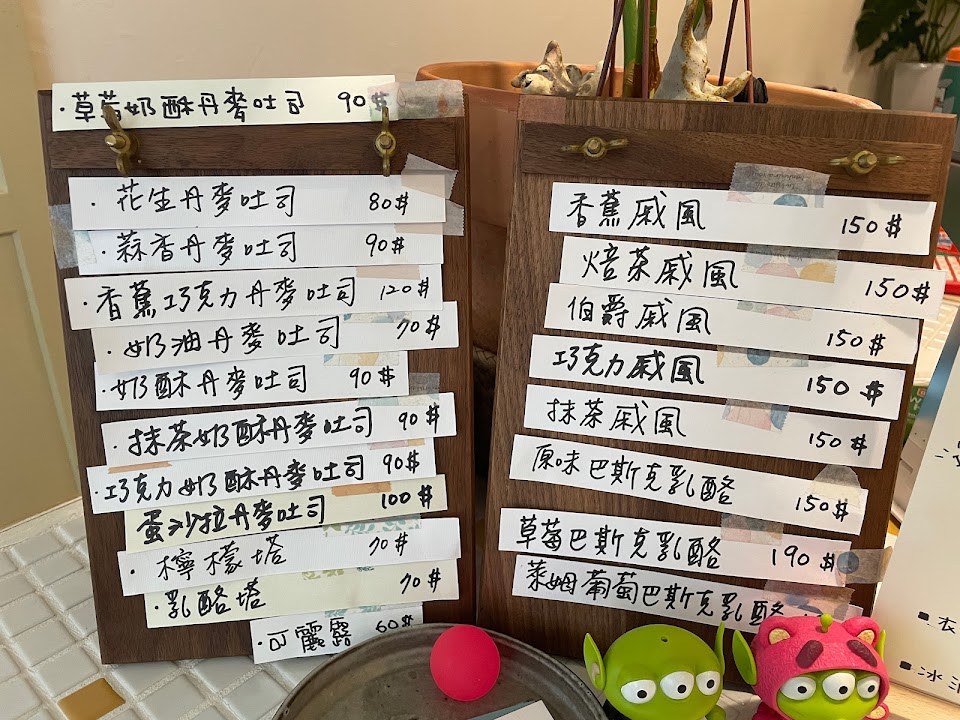 ·草莓奶酥丹麥吐司 90$
·花生丹麥吐司 80$
·蒜香丹麥吐司 90$
·香蕉巧克力丹麥吐司 120$
·奶油丹麥吐司 70$
·奶酥丹麥吐司 90$
·抹茶奶酥丹麥吐司 90$
·巧克力奶酥丹麥吐司 90$
蛋沙拉丹麥吐司 100$
·檸檬塔 70$
·乳酪塔 70$
·可麗露 60$
香蕉戚風 150$
焙茶戚風 150$
伯爵戚風 150$
巧克力戚風 150$
抹茶戚風 150$
原味巴斯克乳酪 150$
草莓巴斯克乳酪 190$
萊姆葡萄巴斯克乳酪
■衣
■冰